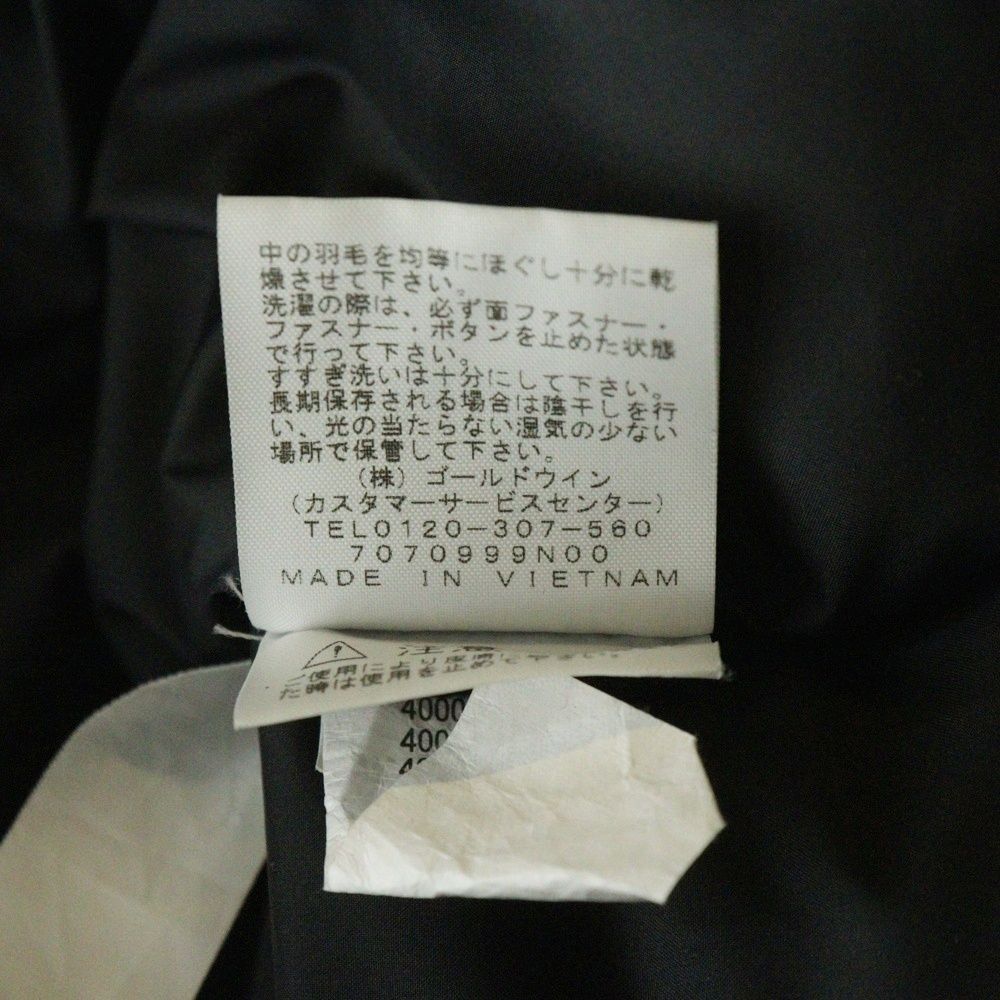 中の羽毛を均等にほぐし十分に乾
燥させて下さい。
洗濯の際は、必ず面ファスナー・
ファスナー・ボタンを止めた状態
で行って下さい。
すすぎ洗いは十分にして下さい。
長期保存される場合は陰干しを行
い、光の当たらない湿気の少ない
場所で保管して下さい。
(株)ゴールドウイン
(カスタマーサービスセンター)
TEL0120-307-560
7070999N00
MADE IN VIETNAM
注意
ご使用により皮膚に
た時は使用を止めて下さい。
4000
400